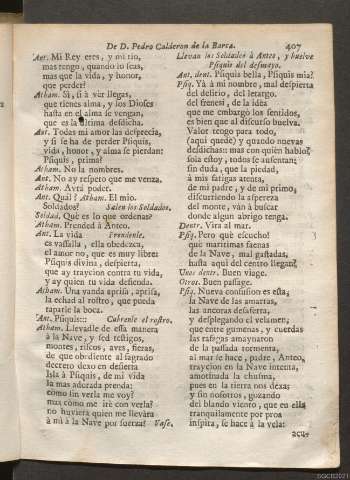 De D. Pedro Calderon de la Barca.
407
Ant. Mi Rey eres, y mi tio,
mas tengo, quando lo seas,
mas que la vida, y honor,
que perder?
Atham. Si, si à vèr llegas,
que tienes alma, y los Dioses
hasta en el alma se vengan,
que es la ultima desdicha.
Ant. Todas mi amor las desprecia,
y si se ha de perder Psiquis,
vida, honor, y alma se pierdan:
Psiquis, prima?
Atham. No la nombres.
Ant. No ay respeto que me venza.
Atham. Avrà poder.
Ant. Qual? Atham. El mio.
Soldados? Salen los Soldados.
Soldad. Què es lo que ordenas?
Atham. Prended à Anteo.
Ant. La vida Prendenle.
es vassalla, ella obedezca,
el amor no, que es muy libre:
Psiquis divina, despierta,
que ay traycion contra tu vida,
y ay quien tu vida defienda.
Atham. Una vanda aprisa, aprisa,
la echad al rostro, que pueda
taparle la boca.
Ant. Psiquis::: Cubrenle el rostro.
Atham. Llevadle de essa manera
à la Nave, y sed testigos,
montes, riscos, aves, fieras,
de que obediente al sagrado
decreto dexo en desierta
Isla à Psiquis, de mi vida
la mas adorada prenda:
còmo sin verla me voy?
mas còmo me irè con verla?
no huviera quien me llevàra
à mi à la Nave por fuerza? Vase.
Llevan los Soldados à Anteo, y buelve
Psiquis del desmayo.
Ant. dent. Psiquis bella, Psiquis mia?
Psiq. Yà à mi nombre, mal despierta
del delirio, del letargo,
del frenesì, de la idèa
que me embargò los sentidos,
es bien que al discurso buelva.
Valor tengo para todo,
(aqui quede) y quando nuevas
desdichas: mas con quien hablo,
sola estoy, todos se ausentan;
sin duda, que la piedad,
à mis fatigas atenta,
de mi padre, y de mi primo,
discurriendo la aspereza
del monte, vàn à buscar
donde algun abrigo tenga.
Dentr. Vira al mar.
Psiq. Pero què escucho!
què maritimas faenas
de la Nave, mal gastadas,
hasta aqui del centro llegan?
Unos dentr. Buen viage.
Otros. Buen passage.
Psiq. Nueva confusion es esta;
la Nave de las amarras,
las ancoras desaferra,
y desplegando el velamen,
que entre gumenas, y cuerdas
las rafagas amaynaron
de la passada tormenta,
al mar se hace, padre, Anteo,
traycion en la Nave intenta,
amotinada la chusma,
pues en la tierra nos dexa;
y sin nosotros, gozando
del blando viento, que en ella
tranquilamente por proa
inspira, se hace à la vela:
acu-
SGCB2021